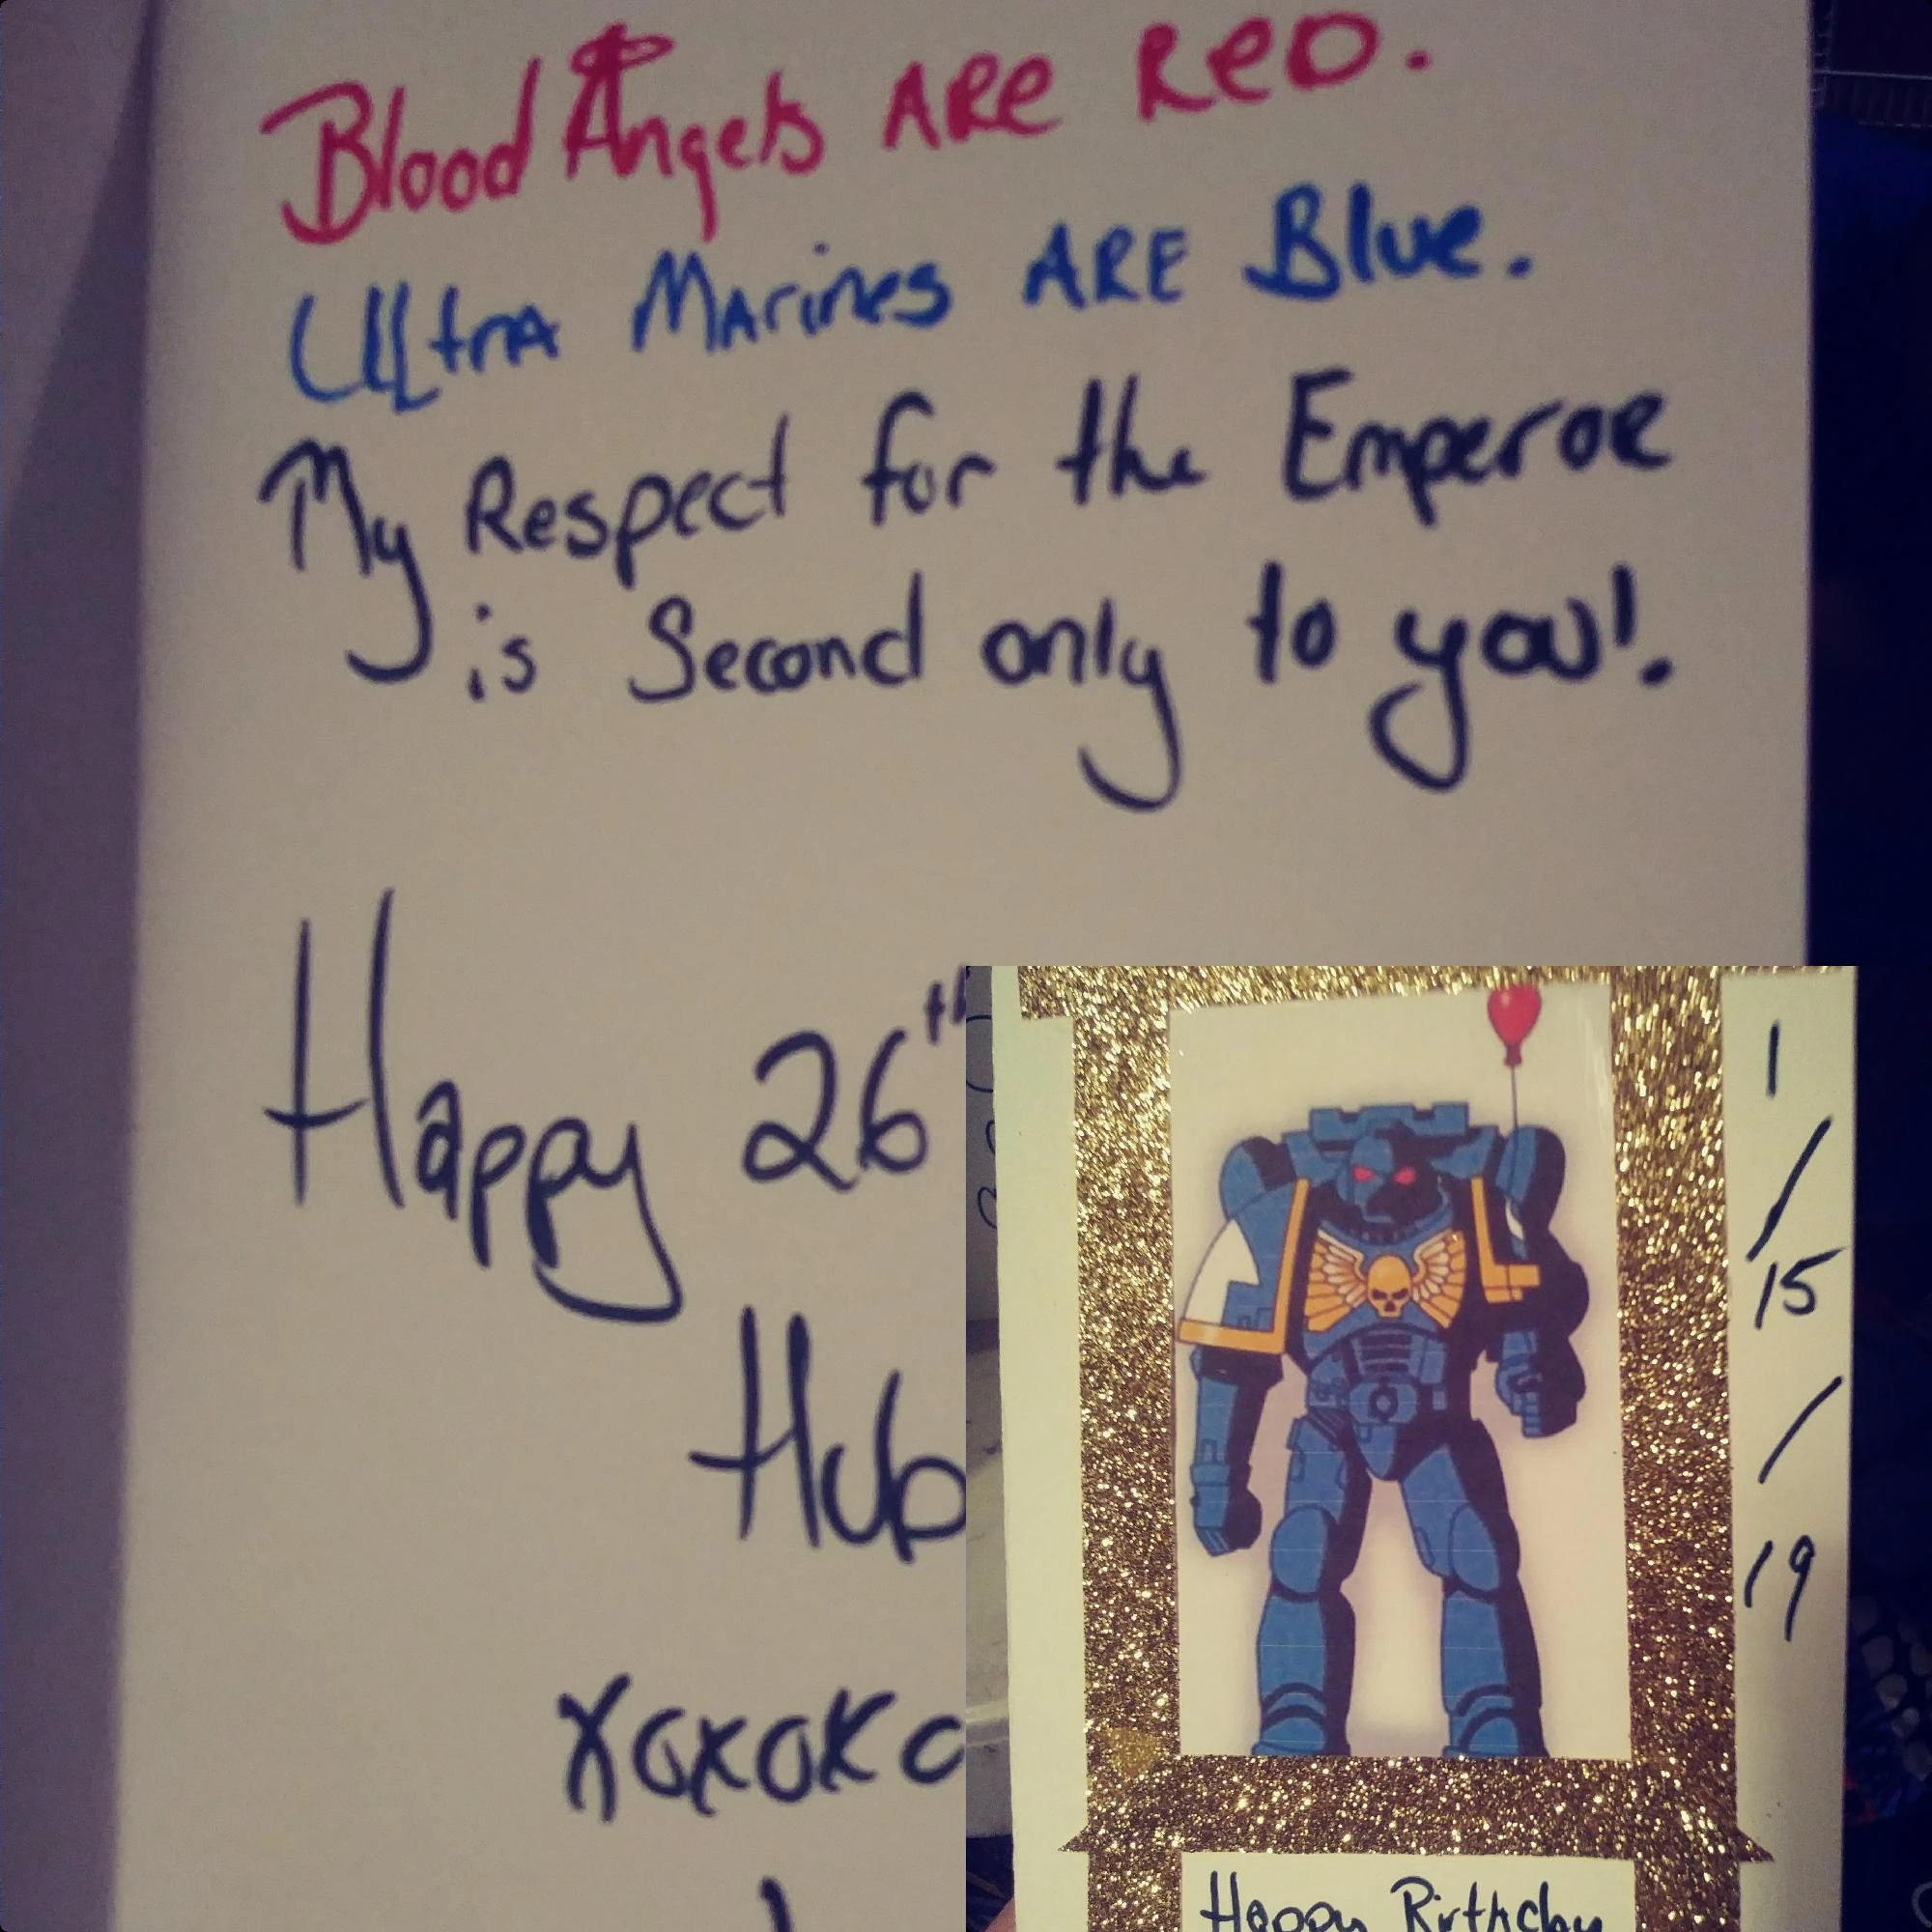 Blood Angels ARE RED.
ULtrA MArines ARE Blue.
My Respect for the Emperor
is Second only to you!.
Happy 26th
Hub
xoxoxo
1
/
15
/
19
Happy Birthday